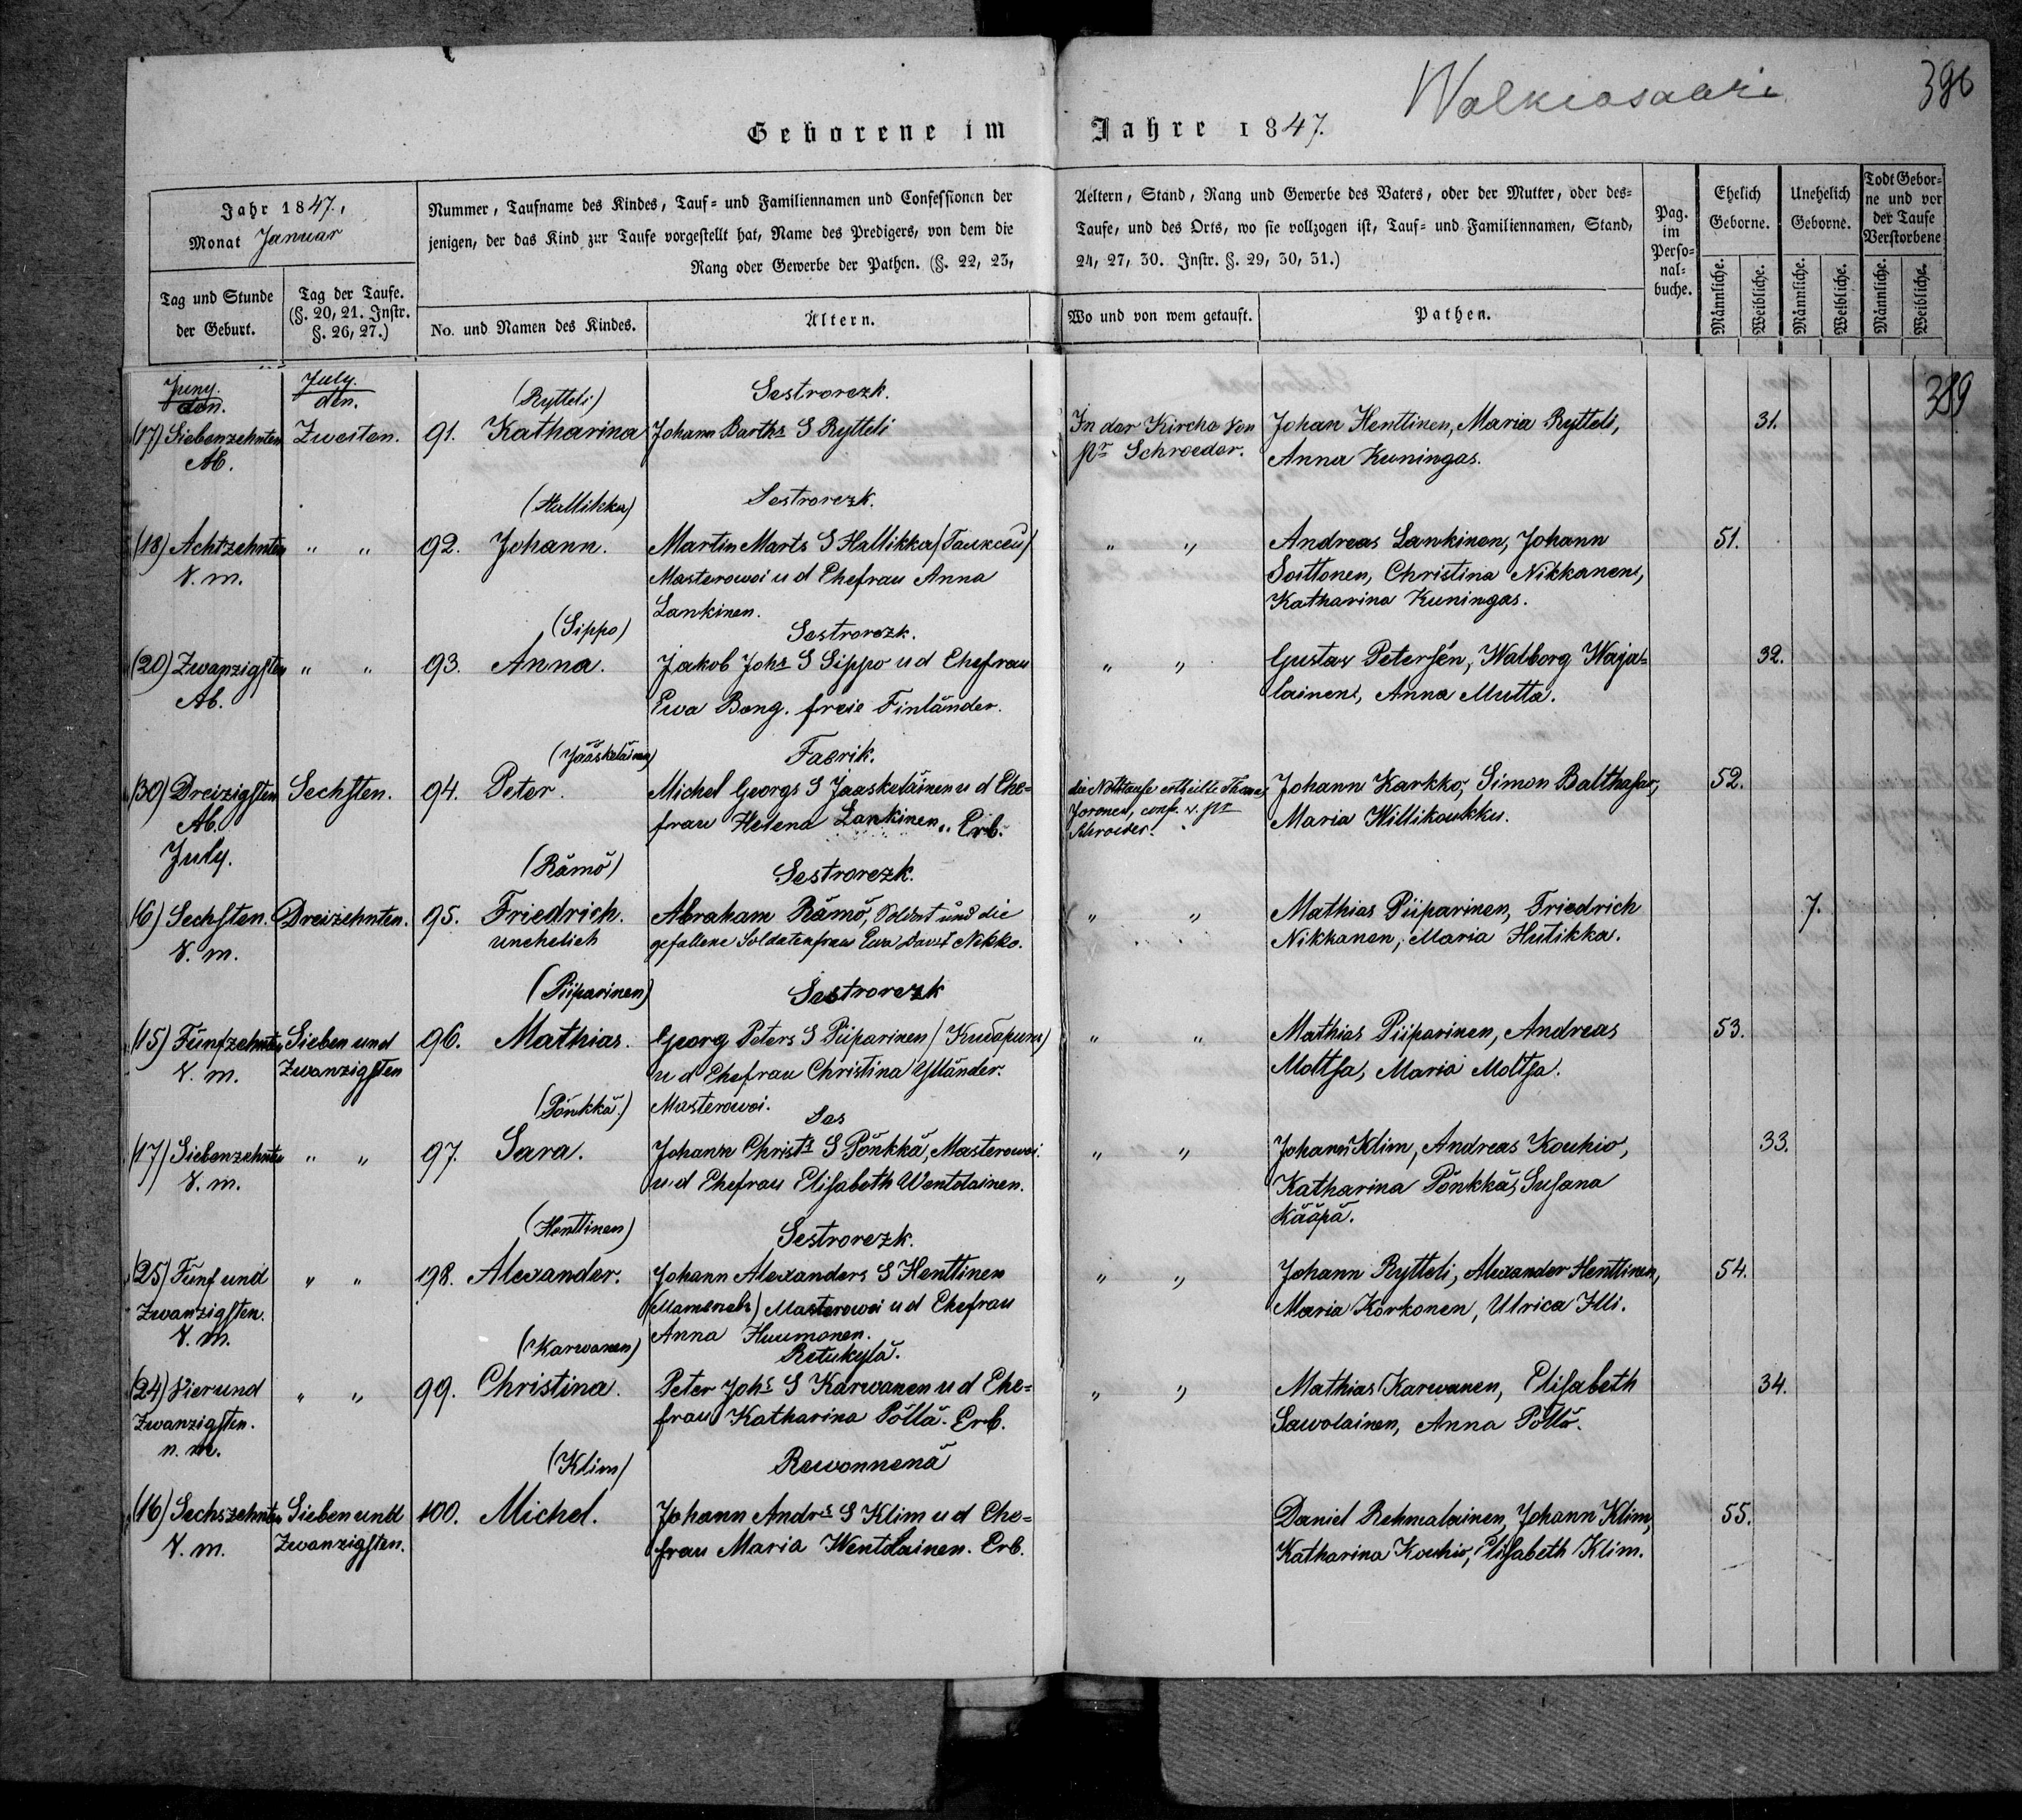 Walkiasaari
396
Geborene im Jahre 1847.
Jahr 1847.,
Monat Januar
Nummer, Taufname des Kindes, Tauf- und Familiennamen und Confessionen der
jenigen, der das Kind zur Taufe vorgestellt hat, Name des Predigers, von dem die
Rang oder Gewerbe der Pathen. (§. 22, 23,
Aeltern, Stand, Rang und Gewerbe des Vaters, oder der Mutter, oder des=
Taufe, und des Orts, wo sie vollzogen ist, Tauf- und Familiennamen, Stand,
24, 27, 30. Instr. §. 29, 30, 31.)
Pag.
im
Perso=
nal=
buche.
Ehelich
Geborne.
Unehelich
Geborne.
Todt Gebor=
ne und vor
der Taufe
Verstorbene
Tag und Stunde
der Geburt.
Tag der Taufe.
(§. 20, 21. Instr.
§. 26, 27.)
No. und Namen des Kindes.
Ältern.
Wo und von wem getauft.
Pathen.
Männliche.
Weibliche.
Männliche.
Weibliche.
Männliche.
Weibliche.
389
Juny.
den.
July.
den.
(Rytteli)
Sestrorezk.
(17) Siebenzehnten
Ab.
Zweiten.
91. Katharina
Johann Barths S Rytteli
In der Kirche von
Pr Schroeder.
Johan Henttinen, Maria Rytteli,
Anna Kuningas.
31.
(Hallikka)
Sestrorezk.
(18) Achtzehnten
V. m.
" "
92. Johann.
Martin Marts S Hallikka
Masterowoi u d Ehefrau Anna
Lankinen.
" "
Andreas Lankinen, Johann
Soittonen, Christina Nikkanen,
Katharina Kuningas.
51.
(Sippo)
Sestrorezk.
(20) Zwanzigsten
Ab.
" "
93. Anna.
Jakob Johs S Sippo u d Ehefrau
Ewa Bong. freie Finländer.
" "
Gustav Petersén, Walborg Waja=
lainen, Anna Mutta.
32.
(Jääskeläinen)
Fabrik.
(30) Dreizigsten
Ab.
Sechsten.
94. Peter.
Michel Georgs S Jaaskeläinen u d Ehe=
frau Helena Lankinen. Erb.
die Nothtaufe ertheilte Thomas
Joronen, conf. v. Pr
Schroeder.
Johann Karkko, Simon Balthasar,
Maria Willikoukku.
52.
July.
(Rämö)
Sestrorezk.
(6) Sechsten.
V. m.
Dreizehnten.
95. Friedrich.
unehelich
Abraham Rämö, Soldat und die
gefallene Soldatenfrau Ewa Nokko.
" "
Mathias Piiparinen, Friedrich
Nikkanen, Maria Hutikka.
7.
(Piiparinen)
Sestrorezk
(15) Fünfzehnten
V. m.
Sieben und
Zwanzigsten
96. Mathias.
Georg Peters S Piiparinen
u d Ehefrau Christina Ylländer.
Masterowoi.
" "
Mathias Piiparinen, Andreas
Moltsa, Maria Moltsa.
53.
(Pönkkä)
Ses
(17) Siebenzehnten
V. m.
" "
97. Sara.
Johann Christs S Pönkkä, Masterowoi.
u d Ehefrau Elisabeth Wentolainen.
" "
Johann Klim, Andreas Kouhio,
Katharina Pönkkä, Susana
Kääpä.
33.
(Henttinen)
Sestrorezk.
(25) Fünf und
Zwanzigsten.
V. m.
" "
98. Alexander.
Johann Alexanders S Henttinen
Masterowoi u d Ehefrau
Anna Huumonen.
" "
Johann Rytteli, Alexander Henttinen,
Maria Korkonen, Ulrica Illi.
54.
(Karwanen)
Retukylä.
(24) Vierund
Zwanzigsten.
n. m.
" "
99. Christina.
Peter Johs S Karwanen u d Ehe=
frau Katharina Pöllä. Erb.
" "
Mathias Karwanen, Elisabeth
Sawolainen, Anna Pöllö.
34.
(Klim)
Rewonnenä
(16) Sechszehnten
V. m.
Sieben und
Zwanzigsten.
100. Michel.
Johann Andrs S Klim u d Ehe=
frau Maria Wentolainen. Erb.
Daniel Rehmalainen, Johann Klim,
Katharina Kouhio, Elisabeth Klim.
55.